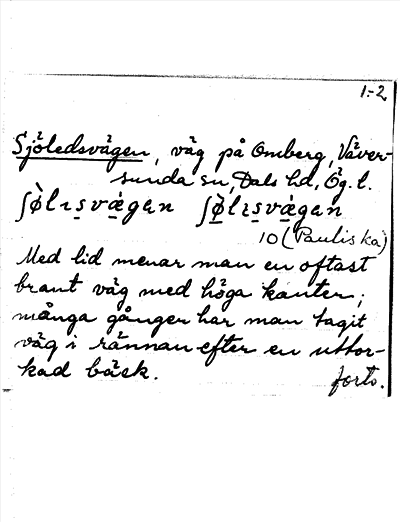 1.-2
Sjöledsvägen, väg på Omberg, Väver-
sunda sn, Dals hd, Ög. l.
ʃø̀lɩs̱vǽgɐn ʃø̱̀lɩs̱vǽ̱gɐn
10 (Pauliska)
Med lid menar man en oftast
brant väg med höga kanter;
många gånger har man tagit
väg i rännan efter en uttor-
kad bäck. forts.